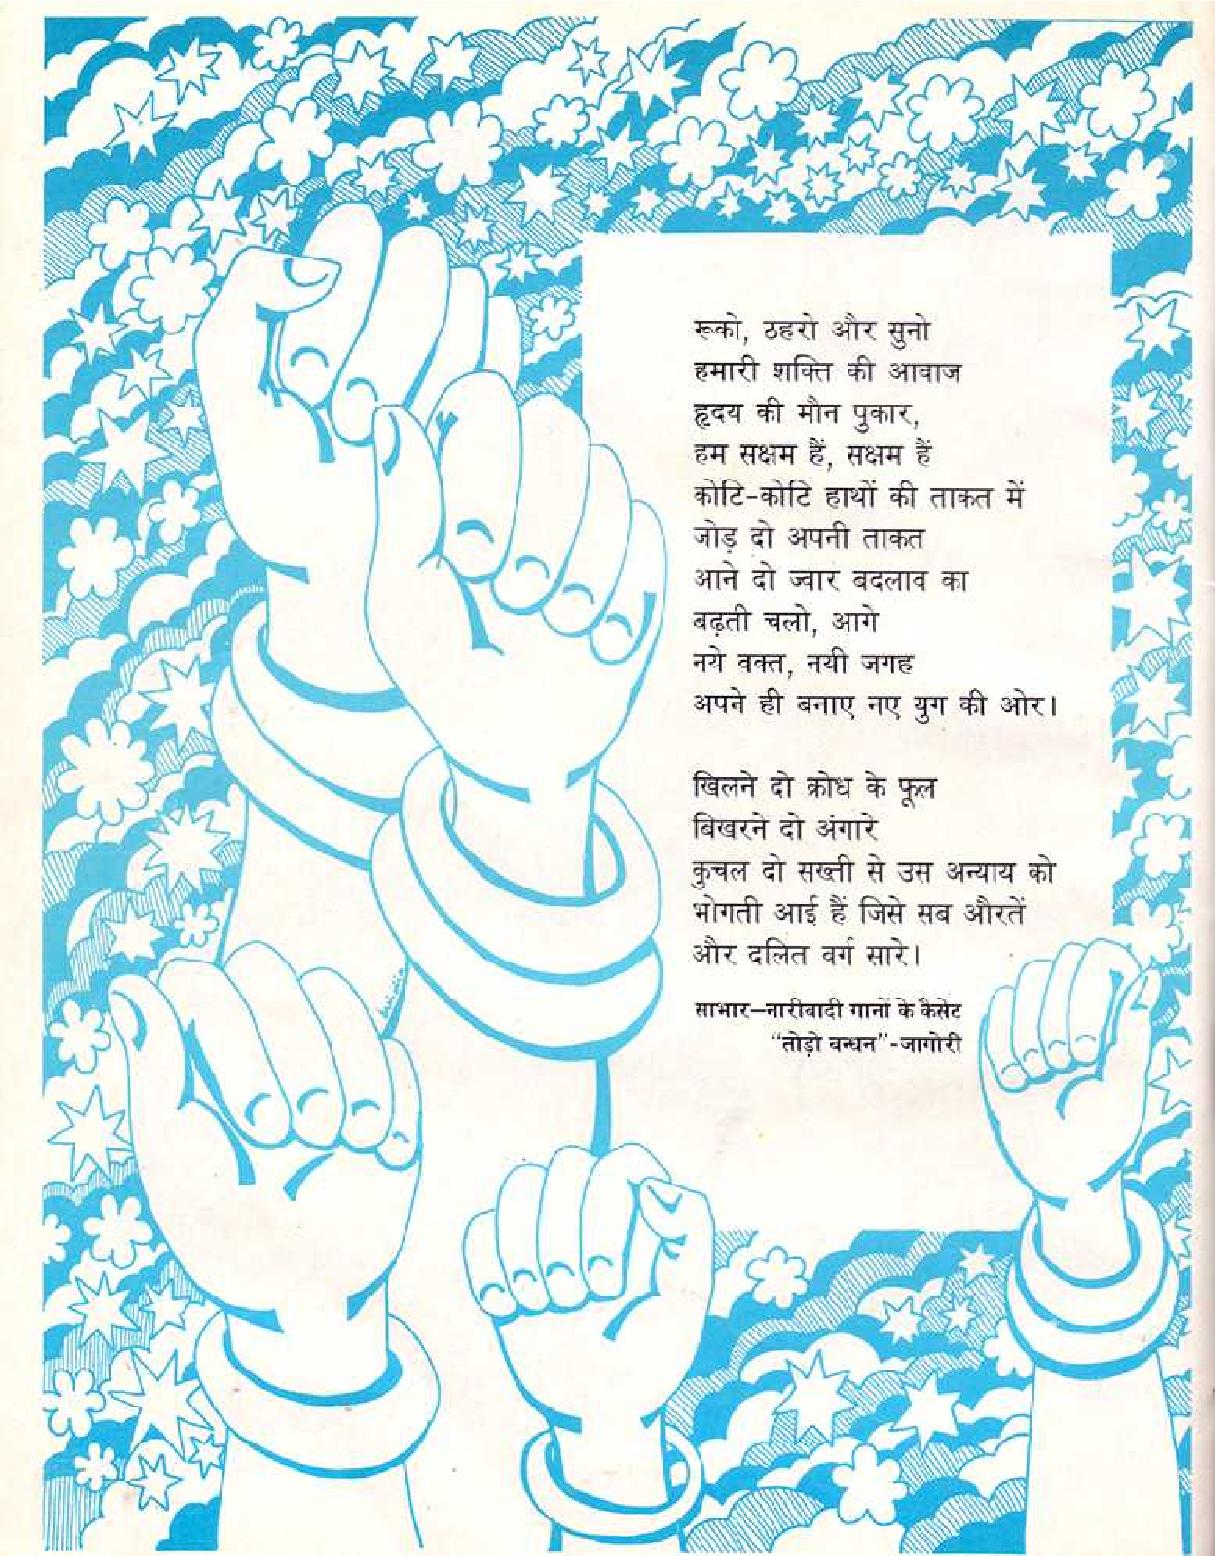 रूको, ठहरो और सुनो
हमारी शक्ति की आवाज
हृदय की मौन पुकार,
हम सक्षम हैं, सक्षम हैं
कोटि-कोटि हाथों की ताकत में
जोड़ दो अपनी ताकत
आने दो ज्वार बदलाव का
बढ़ती चलो, आगे
नये वक्त, नयी जगह
अपने ही बनाए नए युग की ओर।
खिलने दो क्रोध के फूल
बिखरने दो अंगारे
कुचल दो सख्ती से उस अन्याय को
भोगती आई हैं जिसे सब औरतें
और दलित वर्ग सारे।
साभार—नारीवादी गानों के कैसेट
“तोड़ो बन्धन”-जागोरी